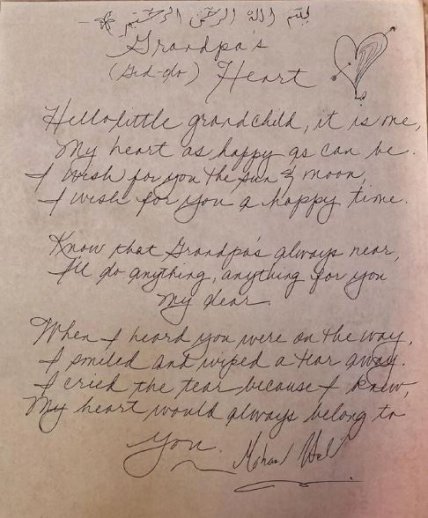 بسم الله الرحمن الرحيم
Grandpa's
(Gid-do) Heart
Hello little grandchild, it is me,
My heart as happy as can be.
I wish for you the sun & moon,
I wish for you a happy time.
Know that Grandpa's always near,
I'll do anything, anything for you
my dear
When I heard you were on the way,
I smiled and wiped a tear away.
I cried the tear because I knew,
My heart would always belong to
you.